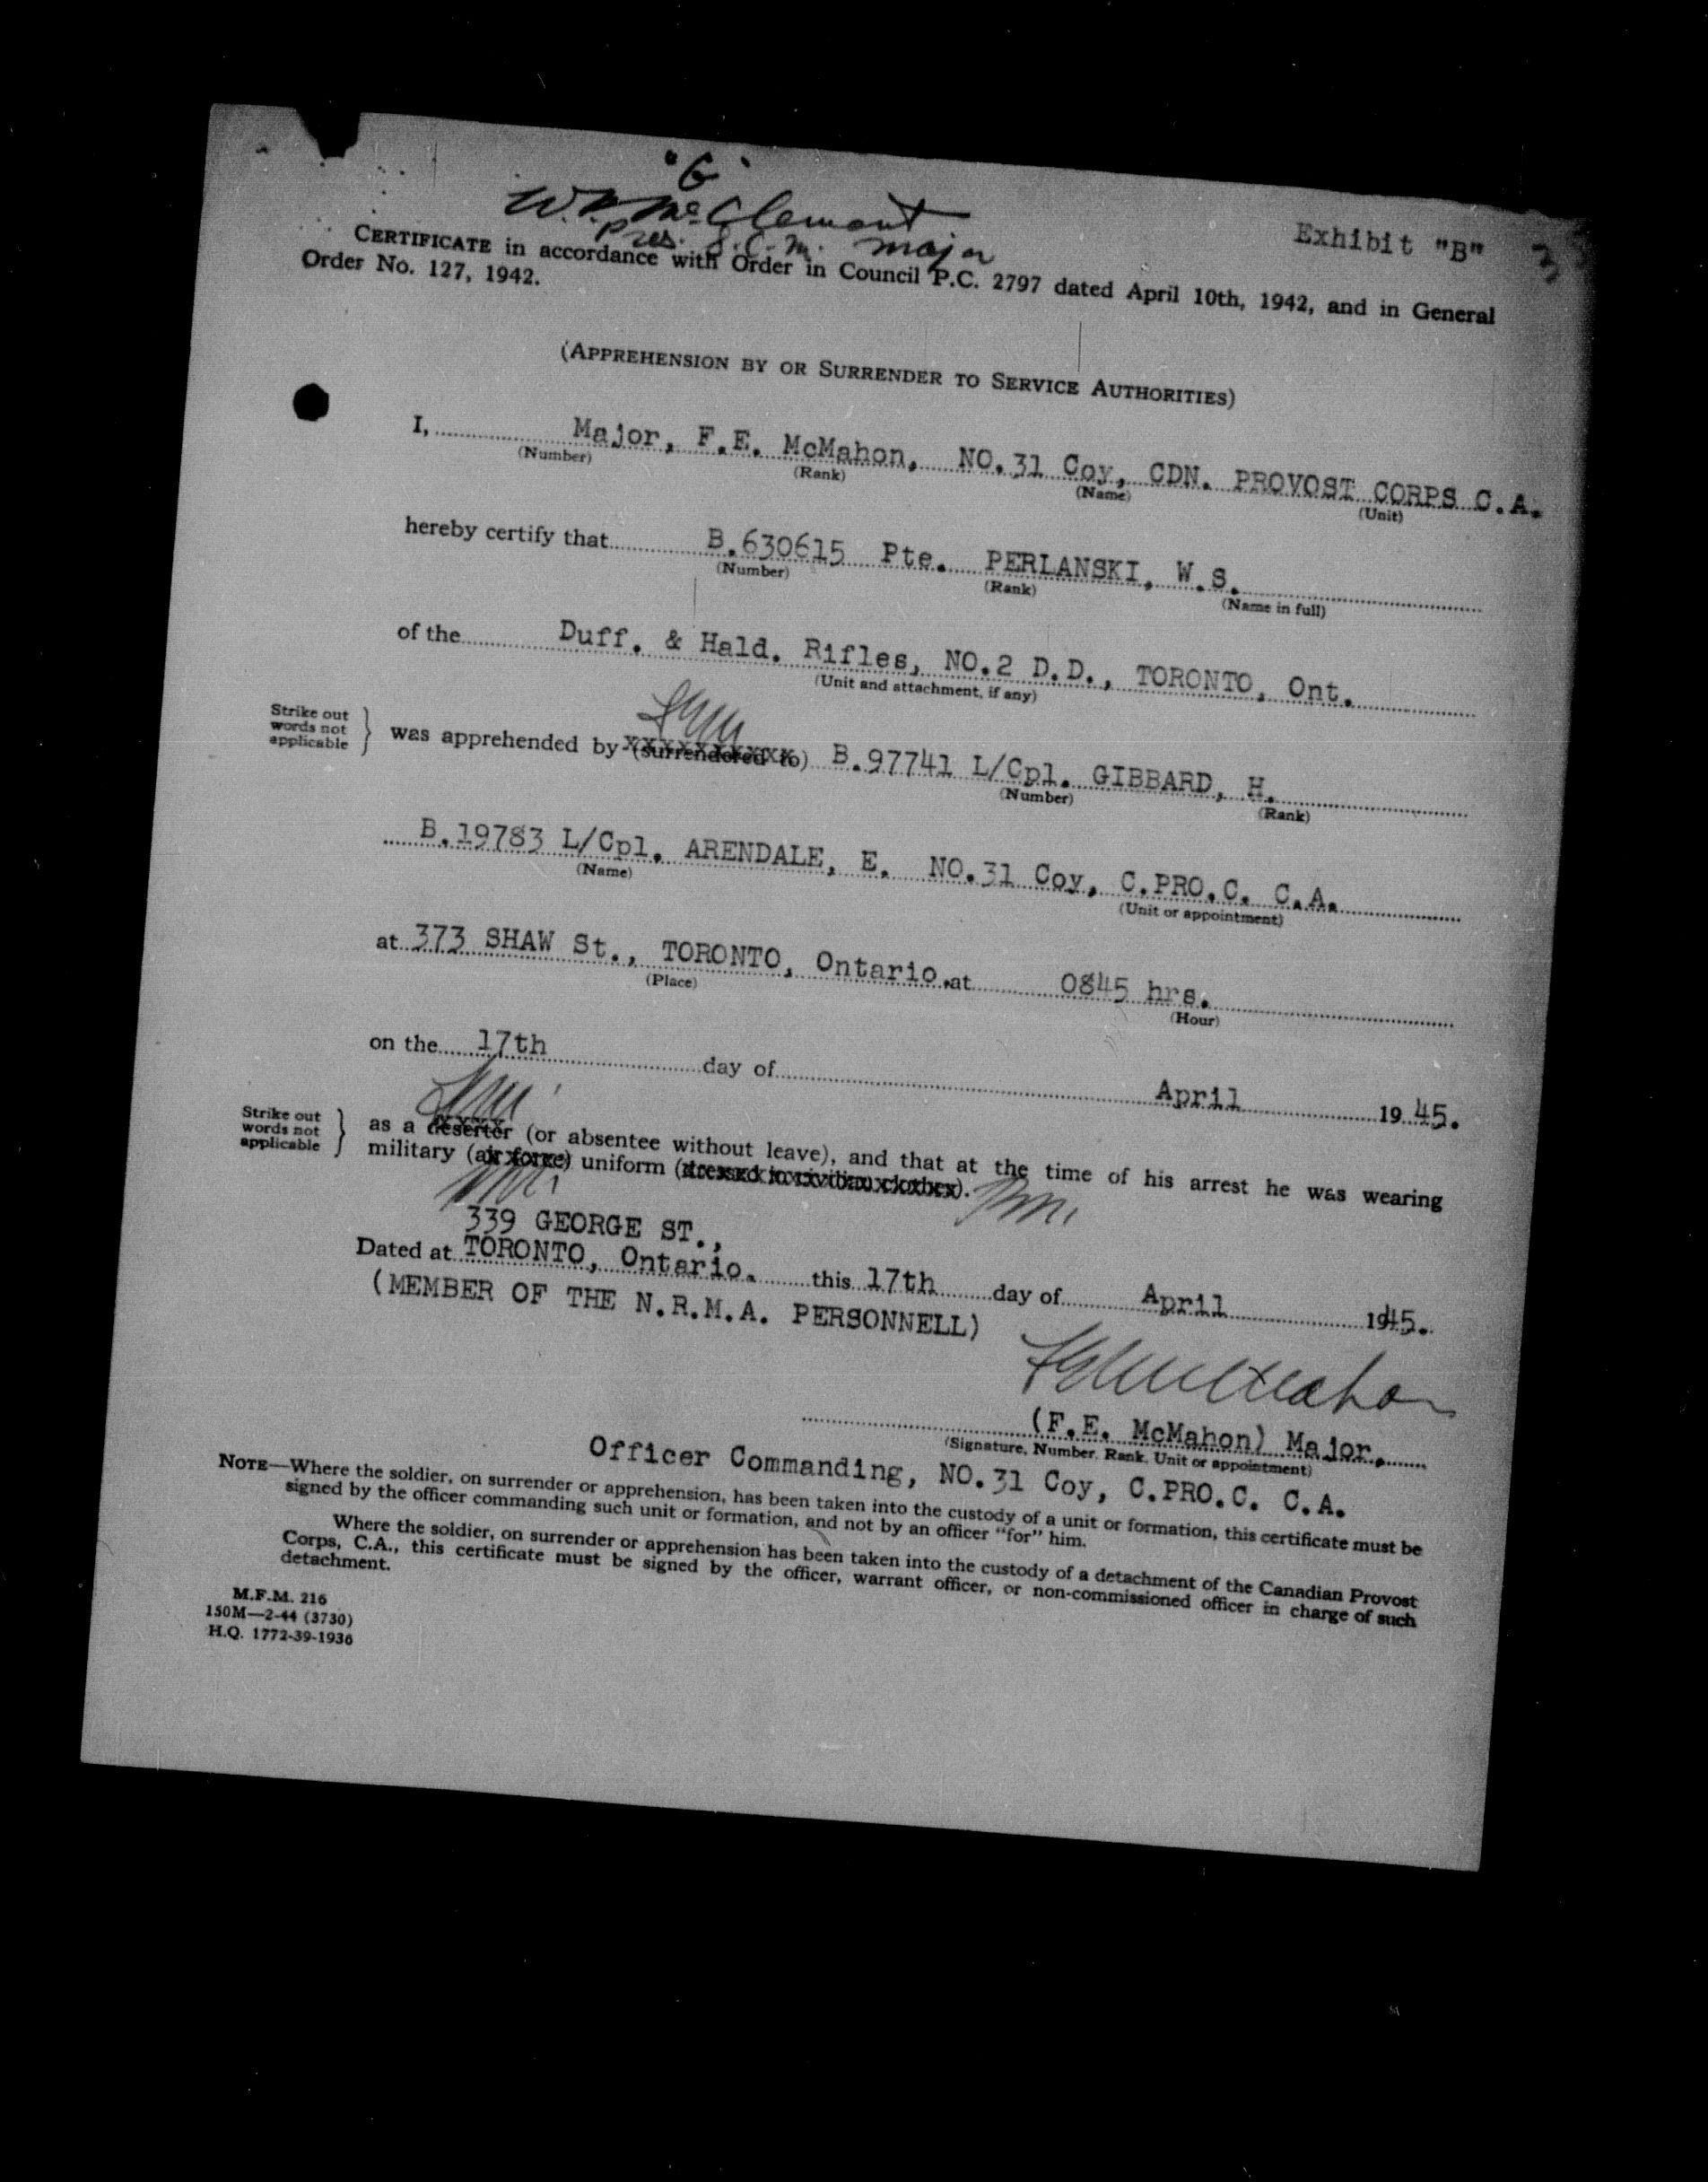 "G"
W. McClemont
Pres. G.C.M. Major
Exhibit "B"
CERTIFICATE in accordance with Order in Council P.C. 2797 dated April 10th, 1942, and in General
Order No. 127, 1942.
(APPREHENSION BY OR SURRENDER TO SERVICE AUTHORITIES)
I, Major, F.E. McMahon, NO.31 Coy, CDN. PROVOST CORPS C.A.
(Number) (Rank) (Name) (Unit)
hereby certify that B.630615 Pte. PERLANSKI, W.S.
(Number) (Rank) (Name in full)
of the Duff. & Hald. Rifles, NO.2 D.D., TORONTO, Ont.
(Unit and attachment, if any)
Strike out
words not
applicable
was apprehended by (surrendered to) B.97741 L/Cpl. GIBBARD, H.
(Number) (Rank)
B.19783 L/Cpl. ARENDALE, E. NO.31 Coy, C.PRO.C. C.A.
(Name) (Unit or appointment)
at 373 SHAW St., TORONTO, Ontario. at 0845 hrs.
(Place) (Hour)
on the 17th day of April 19 45.
Strike out
words not
applicable
as a deserter (or absentee without leave), and that at the time of his arrest he was wearing
military (air force) uniform (dressed in civilian clothes).
339 GEORGE ST.,
Dated at TORONTO, Ontario. this 17th day of April 1945.
(MEMBER OF THE N.R.M.A. PERSONNELL)
F.E. McMahon
(F.E. McMahon) Major,
(Signature, Number, Rank, Unit or appointment)
Officer Commanding, NO.31 Coy, C.PRO.C. C.A.
NOTE—Where the soldier, on surrender or apprehension, has been taken into the custody of a unit or formation, this certificate must be
signed by the officer commanding such unit or formation, and not by an officer "for" him.
Where the soldier, on surrender or apprehension has been taken into the custody of a detachment of the Canadian Provost
Corps, C.A., this certificate must be signed by the officer, warrant officer, or non-commissioned officer in charge of such
detachment.
M.F.M. 216
150M—2-44 (3730)
H.Q. 1772-39-1936